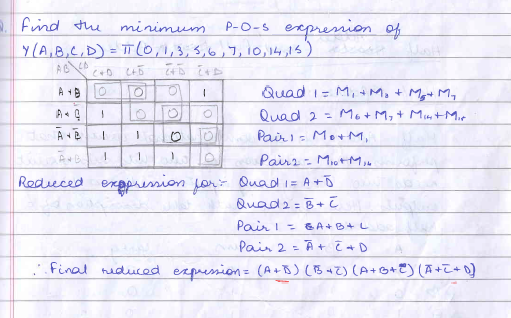 Find the minimum P-O-S expression of
Y(A,B,C,D) = π(0,1,3,5,6,7,10,14,15)
AB CD C+D C+D̄ C̄+D̄ C̄+D
A+B 0 0 0 1
A+B̄ 1 0 0 0
Ā+B̄ 1 1 0 0
Ā+B 1 1 1 0
Quad 1 = M₁ + M₃ + M₅ + M₇
Quad 2 = M₆ + M₇ + M₁₄ + M₁₅
Pair 1 = M₀ + M₁
Pair 2 = M₁₀ + M₁₄
Reduced expression for:- Quad 1 = A + D̄
Quad 2 = B̄ + C̄
Pair 1 = A + B + C
Pair 2 = Ā + C̄ + D
∴ Final reduced expression = (A+D̄) (B̄+C̄) (A+B+C) (Ā+C̄+D)